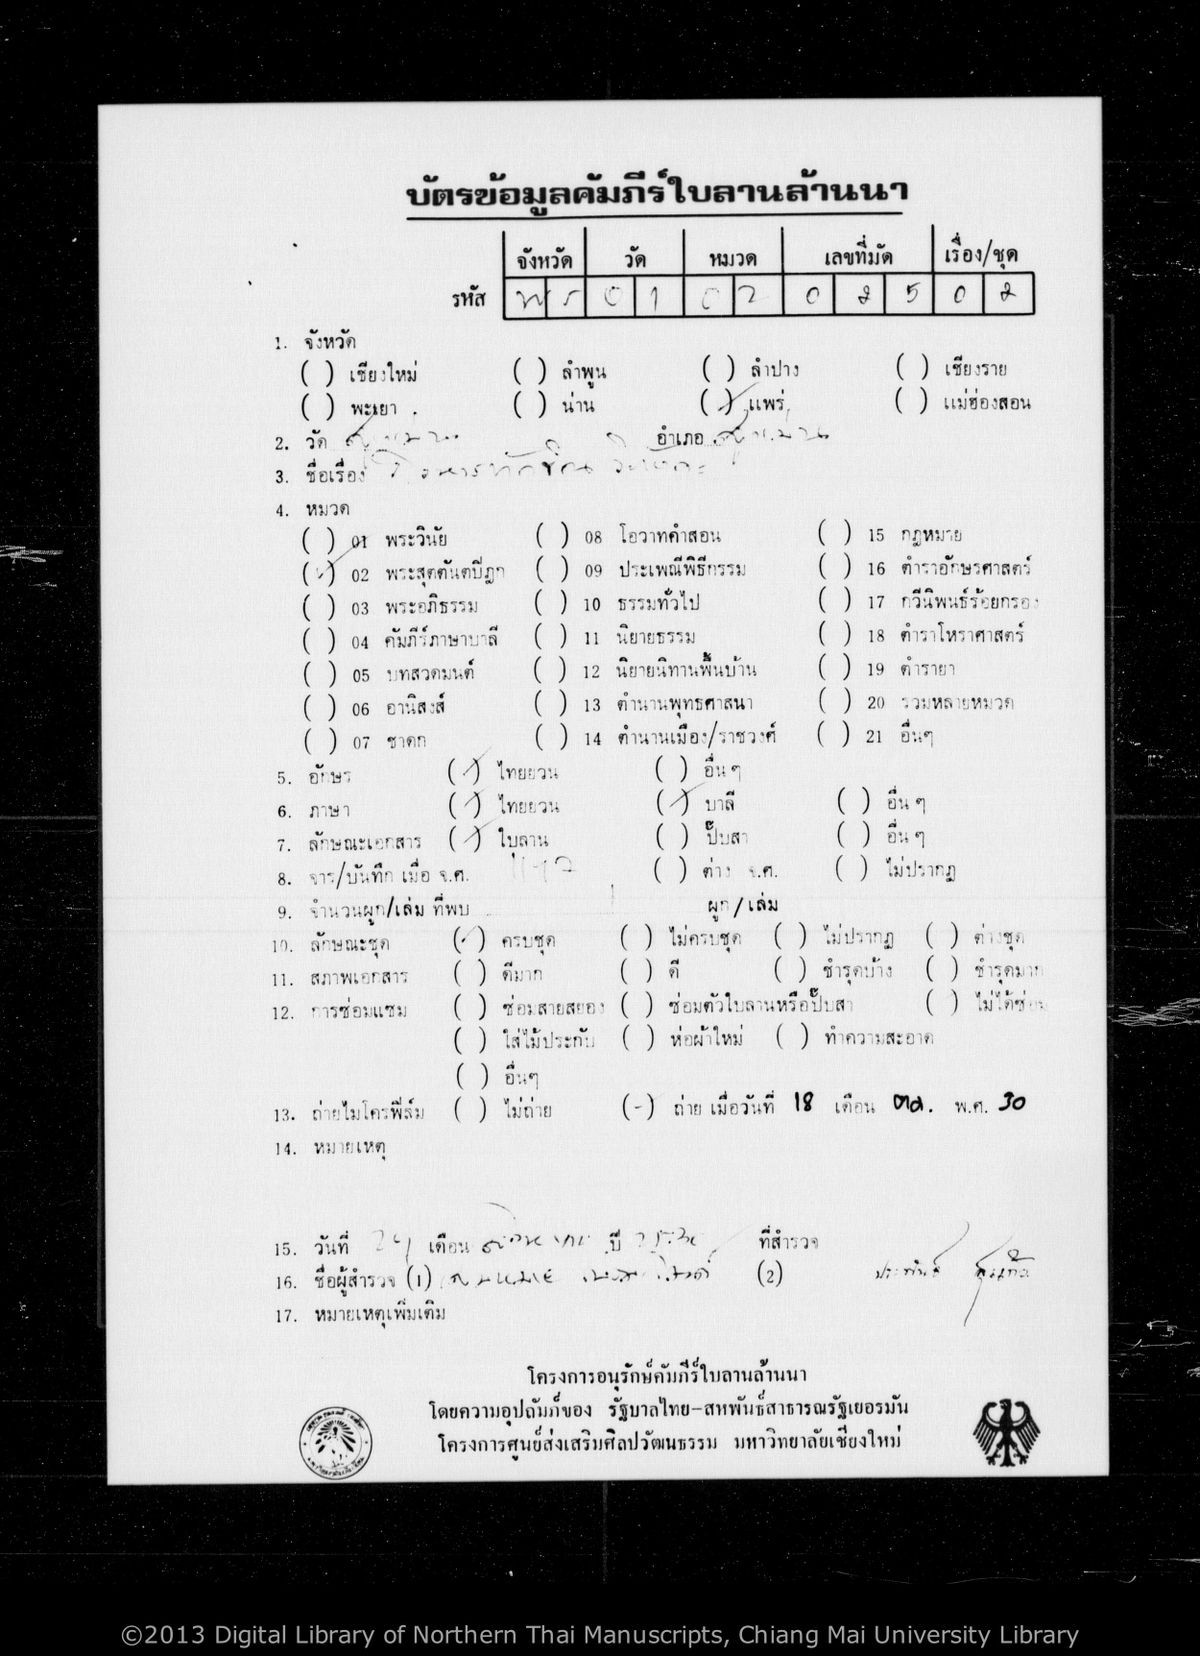 บัตรข้อมูลคัมภีร์ใบลานล้านนา
จังหวัด วัด หมวด เลขที่มัด เรื่อง/ชุด
รหัส พร 0 1 0 2 0 2 5 0 2
1. จังหวัด
( ) เชียงใหม่ ( ) ลำพูน ( ) ลำปาง ( ) เชียงราย
( ) พะเยา ( ) น่าน (✓) แพร่ ( ) แม่ฮ่องสอน
2. วัด สูงเม่น อำเภอ สูงเม่น
3. ชื่อเรื่อง
4. หมวด
( ) 01 พระวินัย ( ) 08 โอวาทคำสอน ( ) 15 กฎหมาย
(✓) 02 พระสุตตันตปิฎก ( ) 09 ประเพณีพิธีกรรม ( ) 16 ตำราอักษรศาสตร์
( ) 03 พระอภิธรรม ( ) 10 ธรรมทั่วไป ( ) 17 กวีนิพนธ์ร้อยกรอง
( ) 04 คัมภีร์ภาษาบาลี ( ) 11 นิยายธรรม ( ) 18 ตำราโหราศาสตร์
( ) 05 บทสวดมนต์ ( ) 12 นิยายนิทานพื้นบ้าน ( ) 19 ตำรายา
( ) 06 อานิสงส์ ( ) 13 ตำนานพุทธศาสนา ( ) 20 รวมหลายหมวด
( ) 07 ชาดก ( ) 14 ตำนานเมือง/ราชวงศ์ ( ) 21 อื่นๆ
5. อักษร (✓) ไทยยวน ( ) อื่นๆ
6. ภาษา (✓) ไทยยวน (✓) บาลี ( ) อื่นๆ
7. ลักษณะเอกสาร (✓) ใบลาน ( ) ปั๊บสา ( ) อื่นๆ
8. จาร/บันทึก เมื่อ จ.ศ. ( ) ต่าง จ.ศ. ( ) ไม่ปรากฏ
9. จำนวนผูก/เล่ม ที่พบ 1 ผูก/เล่ม
10. ลักษณะชุด (✓) ครบชุด ( ) ไม่ครบชุด ( ) ไม่ปรากฏ ( ) ต่างชุด
11. สภาพเอกสาร ( ) ดีมาก ( ) ดี ( ) ชำรุดบ้าง ( ) ชำรุดมาก
12. การซ่อมแซม ( ) ซ่อมสายสยอง ( ) ซ่อมตัวใบลานหรือปั๊บสา ( ) ไม่ได้ซ่อม
( ) ใส่ไม้ประกับ ( ) ห่อผ้าใหม่ ( ) ทำความสะอาด
( ) อื่นๆ
13. ถ่ายไมโครฟิล์ม ( ) ไม่ถ่าย (-) ถ่าย เมื่อวันที่ 18 เดือน ตค. พ.ศ. 30
14. หมายเหตุ
15. วันที่ เดือน สิงหาคม ปี ที่สำรวจ
16. ชื่อผู้สำรวจ (1) (2) ประพันธ์
17. หมายเหตุเพิ่มเติม
โครงการอนุรักษ์คัมภีร์ใบลานล้านนา
โดยความอุปถัมภ์ของ รัฐบาลไทย-สหพันธ์สาธารณรัฐเยอรมัน
โครงการศูนย์ส่งเสริมศิลปวัฒนธรรม มหาวิทยาลัยเชียงใหม่
©2013 Digital Library of Northern Thai Manuscripts, Chiang Mai University Library